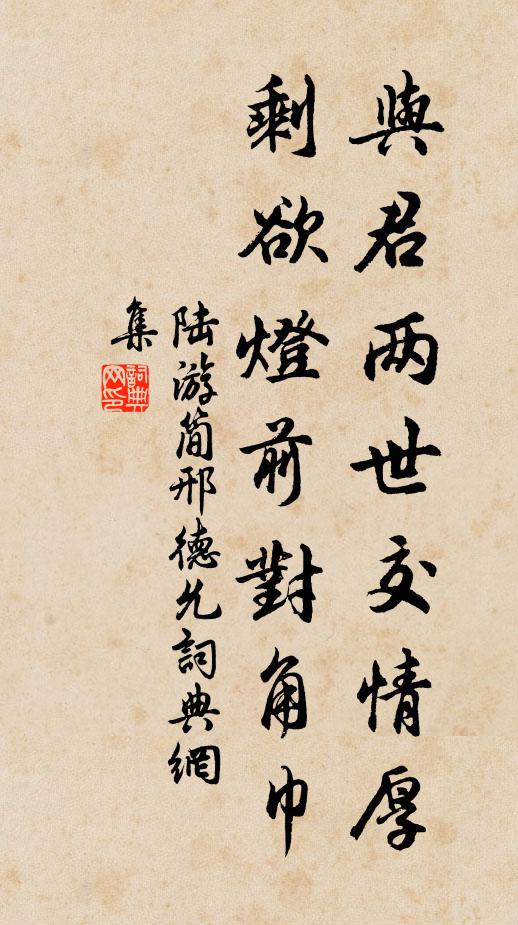 與君两世交情厚
剩欲燈前對角巾
陆游简邢德允詞典網
集
詞典网印